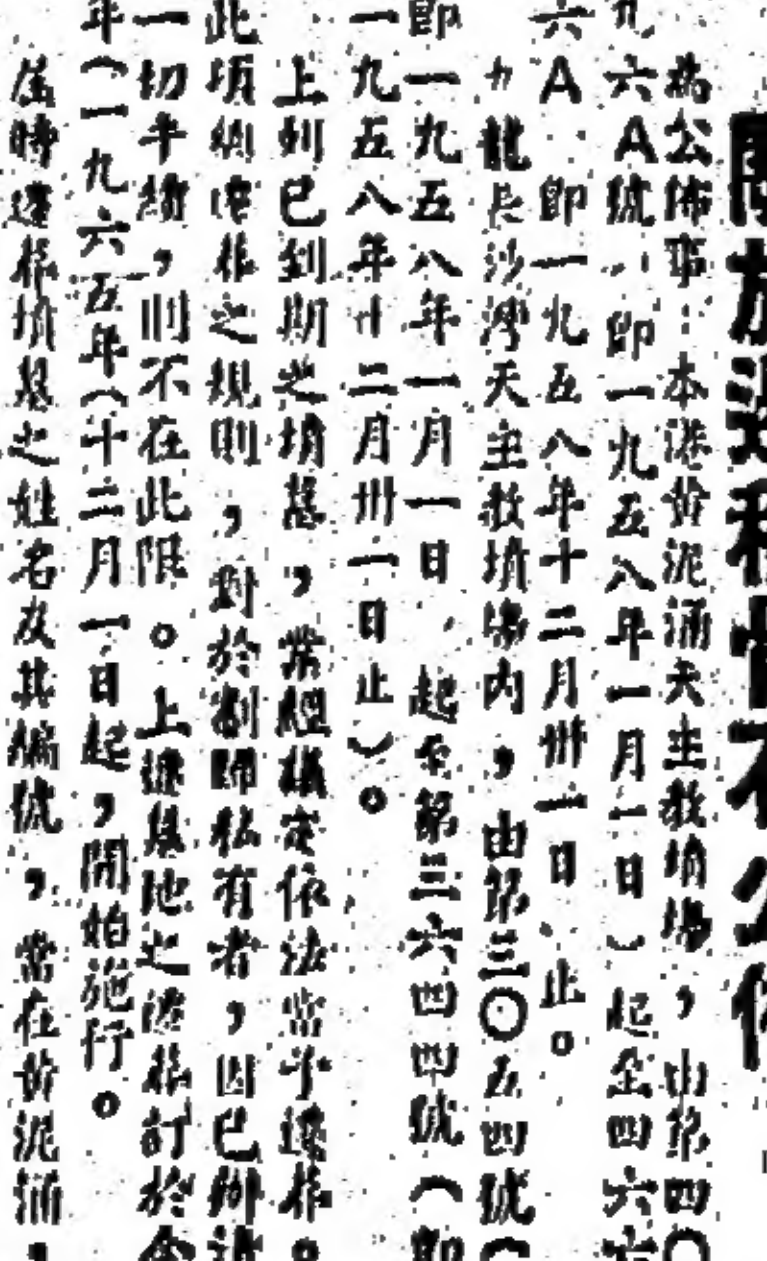 關於遷移骨石公佈
為公佈事：本港黃泥涌天主教墳場，由第四〇
九六A號（即一九五八年一月一日）起至四六六
六A 即一九五八年十二月卅一日 止。
九龍長沙灣天主教墳場內，由第三〇五四號（
即一九五八年一月一日 起至第三六四四號（即
一九五八年十二月卅一日止）。
上列已到期之墳墓，業經議定依法當予遷移。
此項 遷移之規則，對於劃歸私有者，因已辦
一切手續，則不在此限。上述墓地之遷移訂於今
年（一九六五年（十二月一日起，開始施行。
屆時遷移墳墓之姓名及其編號，當在黃泥涌